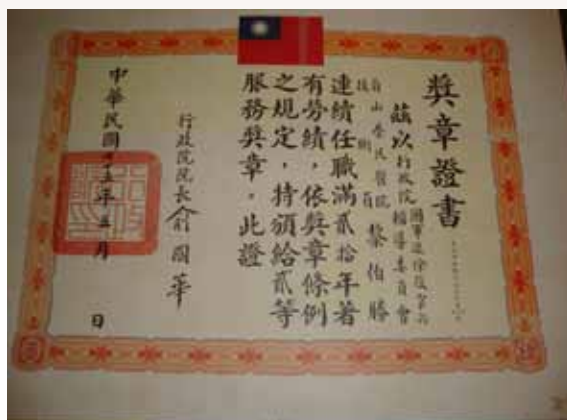 獎章證書
茲以行政院
國軍退除役官兵
輔導委員會
自山榮民醫院
技術員
黎伯勝
連續任職滿貳拾年著
有勞績，依獎章條例
之規定，持頒給貳等
服務獎章。此證
行政院院長俞國華
中華民國七十五年五月 日